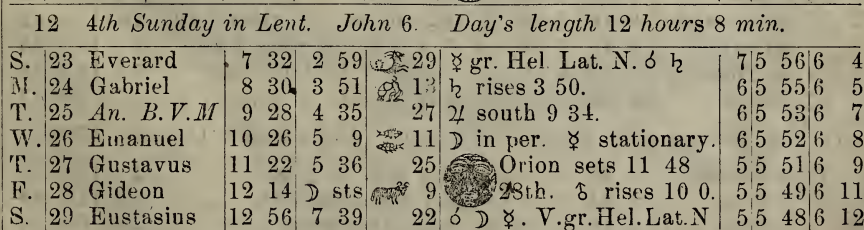 12 4th Sunday in Lent. John 6. Day's length 12 hours 8 min.
S. 23 Everard 7 32 2 59 29 ☿ gr. Hel. Lat. N. ☌ ♄ 7 5 56 6 4
M. 24 Gabriel 8 30 3 51 13 ♄ rises 3 50. 6 5 55 6 5
T. 25 An. B.V.M 9 28 4 35 27 ♃ south 9 34. 6 5 53 6 7
W. 26 Emanuel 10 26 5 9 11 ☽ in per. ☿ stationary. 6 5 52 6 8
T. 27 Gustavus 11 22 5 36 25 Orion sets 11 48 5 5 51 6 9
F. 28 Gideon 12 14 ☽ sts 9 28th. rises 10 0. 5 5 49 6 11
S. 29 Eustasius 12 56 7 39 22 ☌ ☽ ☿. V.gr.Hel.Lat.N 5 5 48 6 12